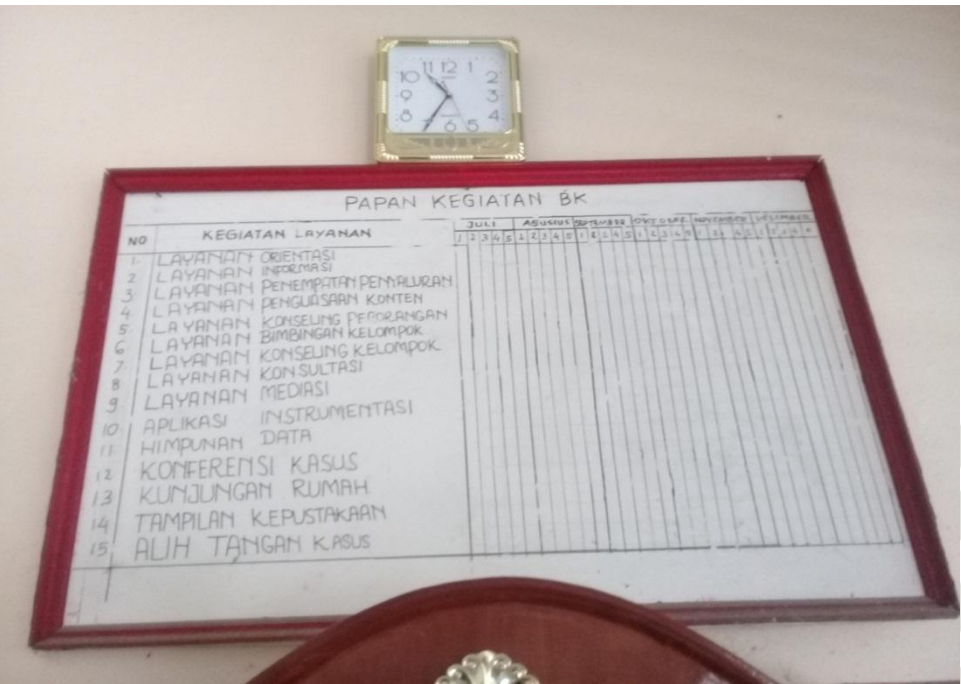 11 12 1
10 2
9 3
8 4
6 5
PAPAN KEGIATAN BK
NO KEGIATAN LAYANAN JULI AGUSTUS SEPTEMBER OKTOBER NOVEMBER DESEMBER
1 2 3 4 5 1 2 3 4 5
1. LAYANAN ORIENTASI
2 LAYANAN INFORMASI
3. LAYANAN PENEMPATAN PENYALURAN
4. LAYANAN PENGUASAAN KONTEN
5 LAYANAN KONSELING PERORANGAN
6 LAYANAN BIMBINGAN KELOMPOK
7 LAYANAN KONSELING KELOMPOK
8 LAYANAN KONSULTASI
9 LAYANAN MEDIASI
10 APLIKASI INSTRUMENTASI
11 HIMPUNAN DATA
12 KONFERENSI KASUS
13 KUNJUNGAN RUMAH
14 TAMPILAN KEPUSTAKAAN
15 ALIH TANGAN KASUS